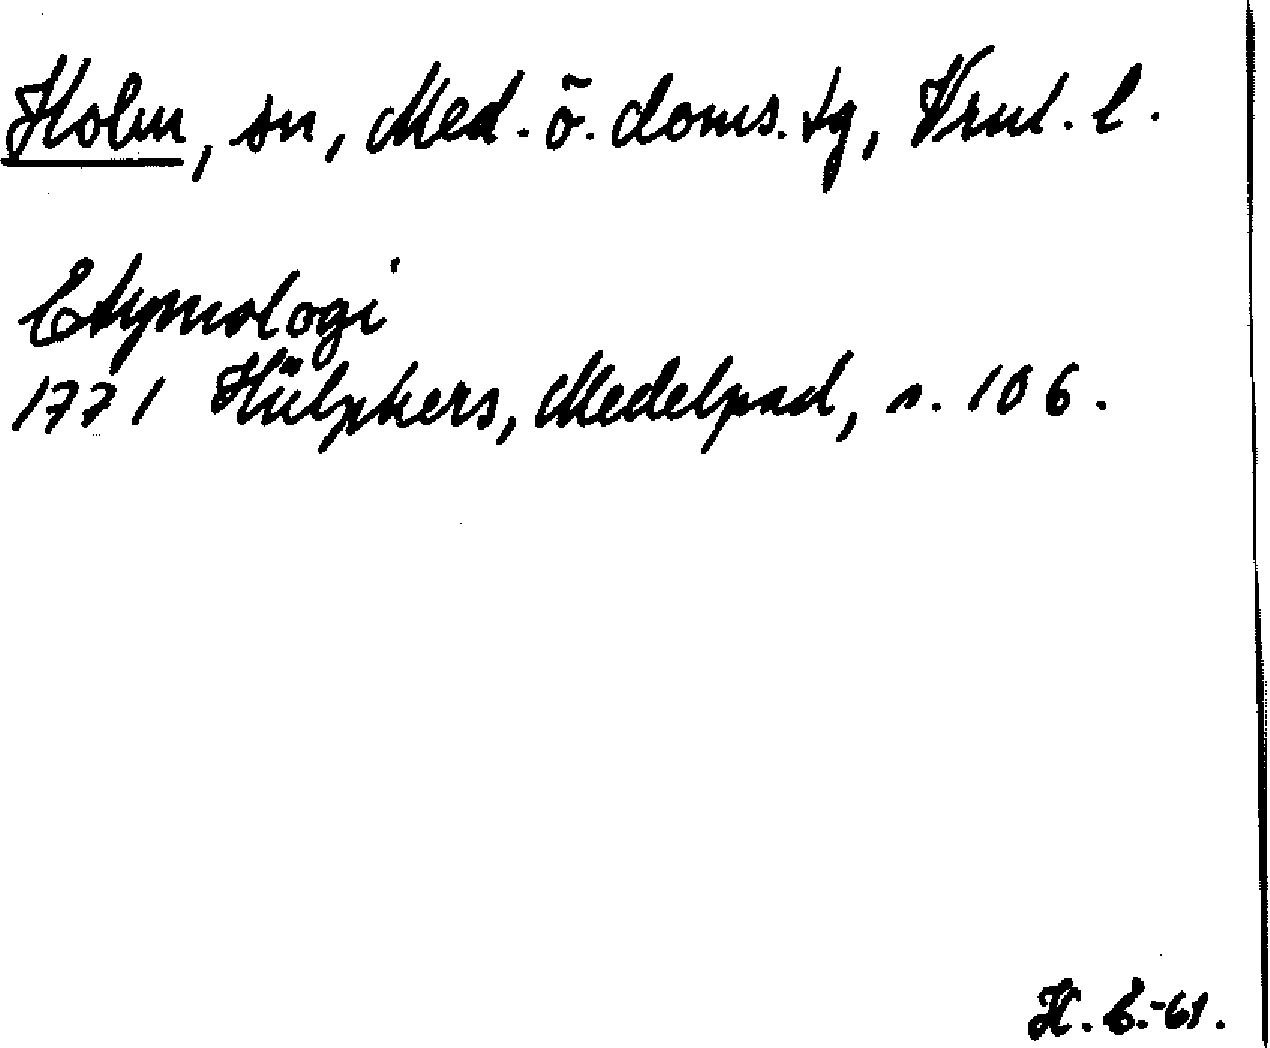 Holm, sn, Med. ö. doms. tg, Vrnl. l.
Etymologi
1771 Hülphers, Medelpad, s. 106.
H. 6.-61.